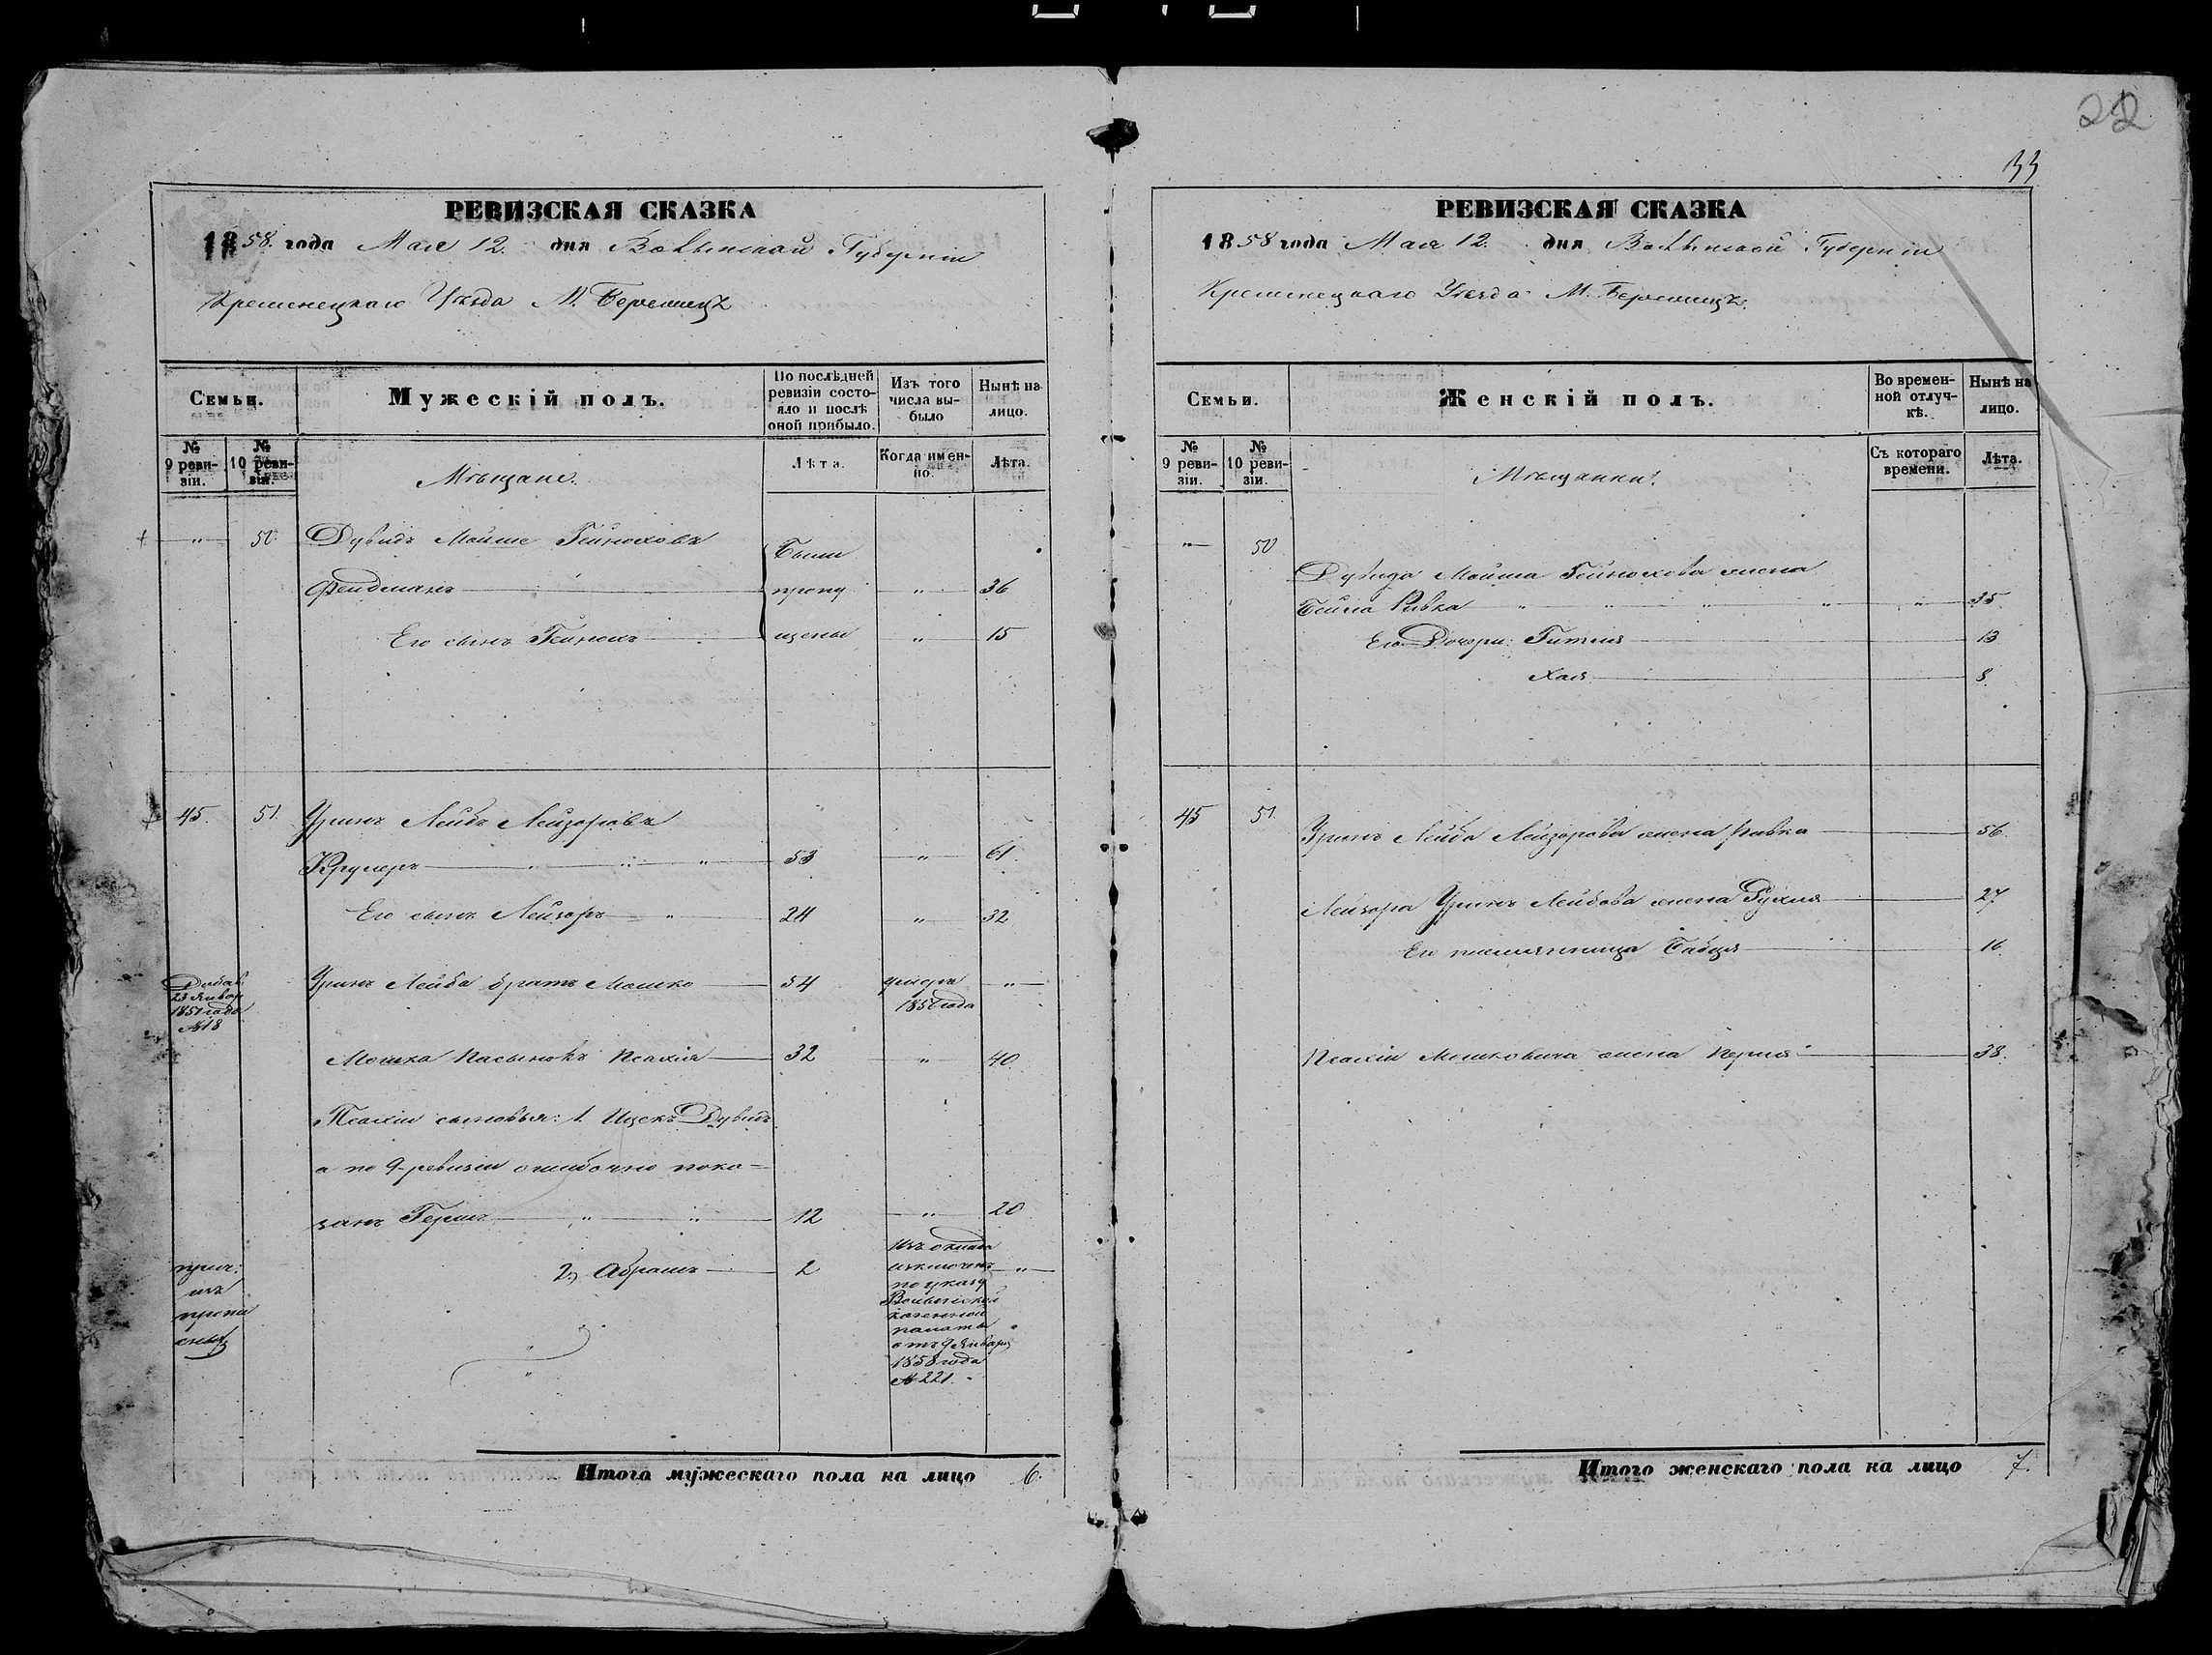 22
33
РЕВИЗСКАЯ СКАЗКА
1858. года Мая 12. дня Волынской Губерніи
Кременецкаго Уѣзда М. Бережецъ
Семьи.
Мужескій полъ.
По послѣдней ревизіи состояло и послѣ оной прибыло.
Изъ того числа выбыло
Нынѣ на лицо.
№ 9 ревизіи.
№ 10 ревизіи.
Мѣщане.
Лѣта.
Когда именно.
Лѣта.
" 50 Дувидъ Мойше Гейноховъ
Фельдманъ Были пропу " 36
Его сынъ Гейнохъ щены " 15
45. 51. Уринъ Лейбъ Лейзоровъ
Крумеръ 53 " 61.
Его сынъ Лейзоръ 24 " 32
Добав. 23 Январ 1851 года №18
Уринъ Лейба братъ Мошко 54 умеръ 1851 года "
Мошка пасынокъ Псахія 32 " 40.
Псахіи сыновья: 1. Ицекъ Дувидъ
а по 9-ревизіи ошибочно пока=
занъ Герш 12 " 20
прич: изъ пропи сных
2, Абрамъ 2 "
Изъ оклада изключенъ по указу Волынской казенной палаты отъ 9 Января 1858 года № 221.
Итого мужескаго пола на лицо 6.
РЕВИЗСКАЯ СКАЗКА
1858 года Мая 12. дня Волынской Губерніи
Кременецкаго Уѣзда М. Бережецъ.
Семьи.
Женскій полъ.
Во временной отлучкѣ.
Нынѣ на лицо.
№ 9 ревизіи.
№ 10 ревизіи.
Мѣщанки.
Съ котораго времени.
Лѣта.
" 50
Дувида Мойша Гейнохова жена
Бейла Ривка " " " " " 35
Его Дочери: Гитля 13
Хая 8.
45 51.
Уринъ Лейба Лейзорова жена Ривка 56.
Лейзора Уринъ Лейбова жена Рухля 27
Его племянница Бабця 16.
Псахіи Мошковича жена Перля 38.
Итого женскаго пола на лицо 7.